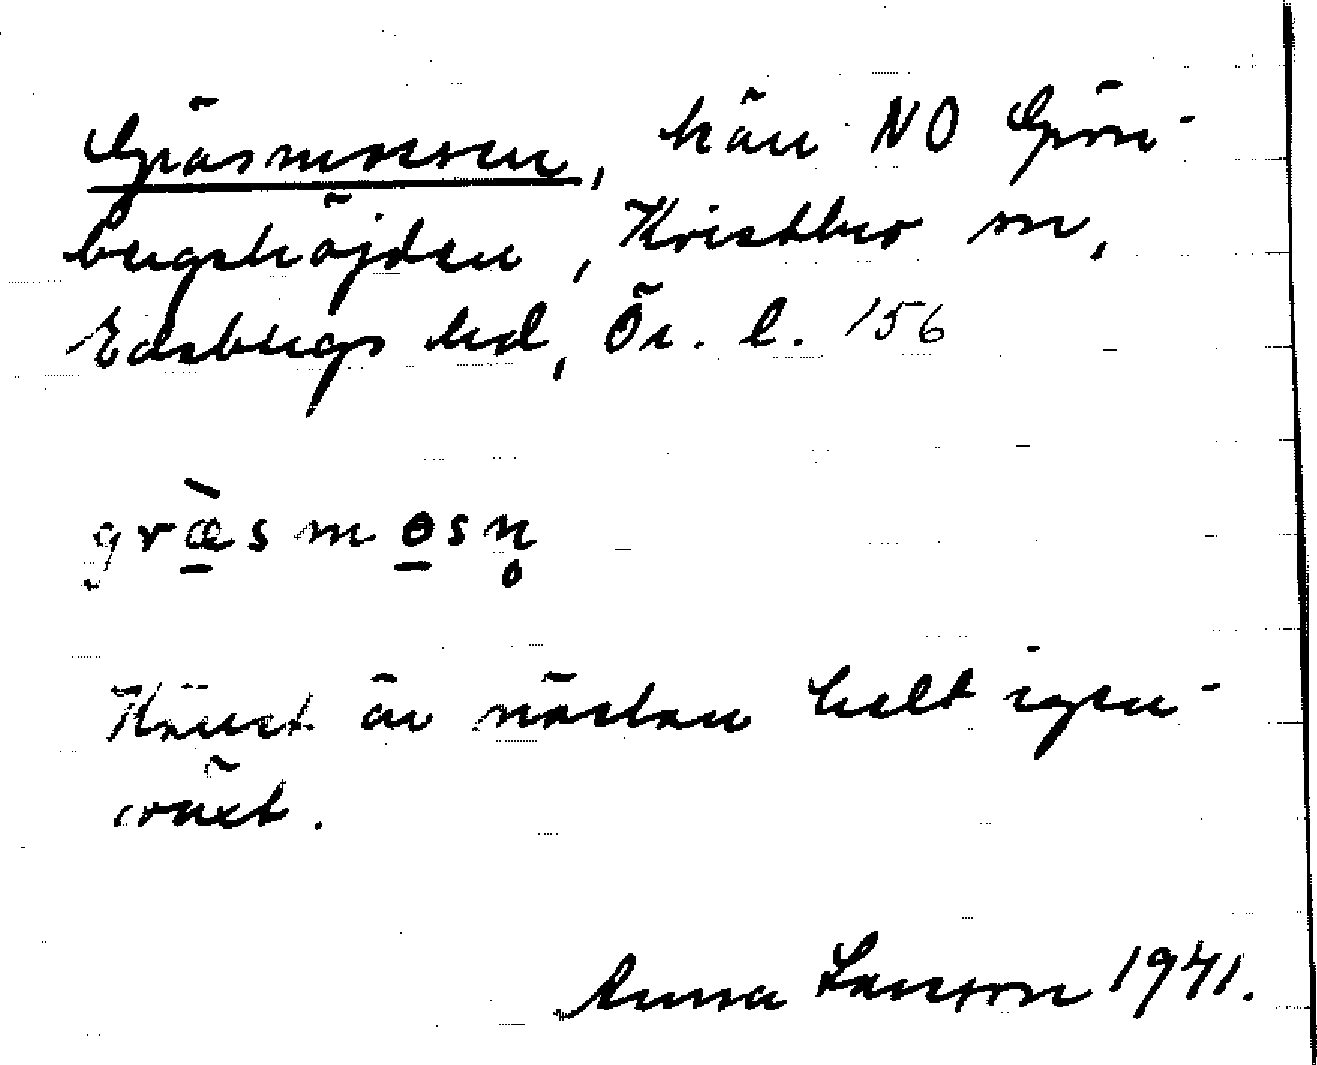 Gräsmossen, kärr NO Grön-
bergshöjden, Kristbrs sn,
Edsbergs hd, Ör. l. 156
græ̀smosn̥
Kärret är nästan helt igen-
växt.
Anna Larsson 1941.